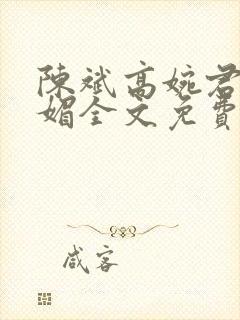 陳斌高婉君
媚全文免費
咸客